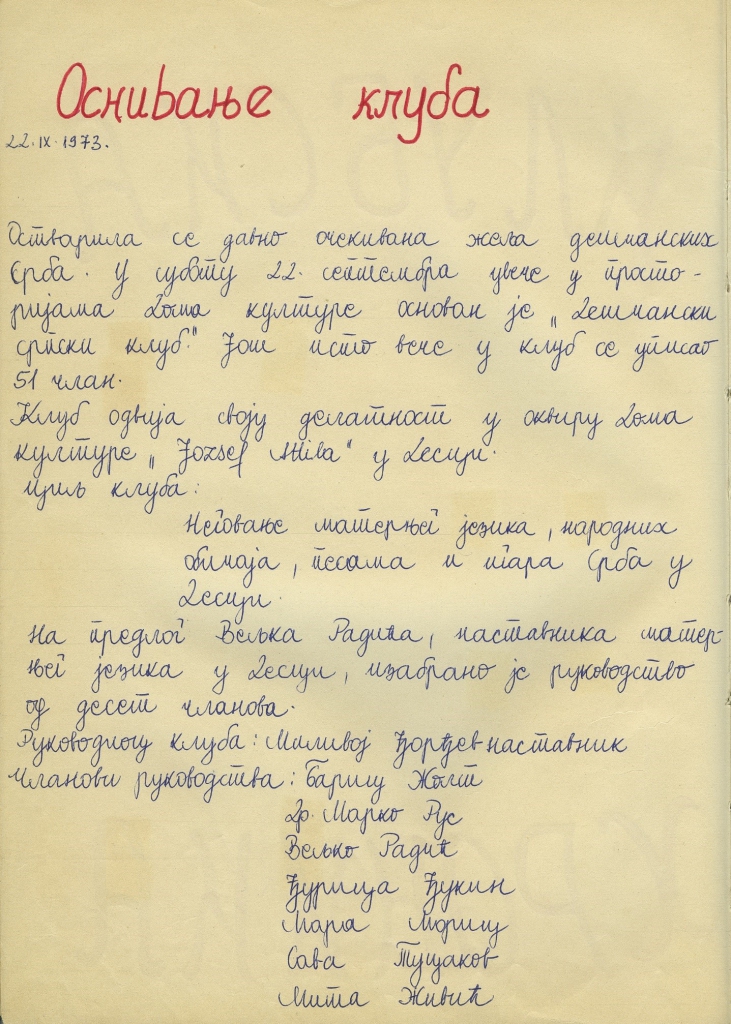 Оснивање клуба
22. IX. 1973.
Остварила се давно очекивана жеља дешчанских
Срба. У суботу 22. септембра увече у просто-
ријама Дома културе основан је „Дешчански
српски клуб." Још исто вече у клуб се уписао
51 члан.
Клуб одвија своју делатност у оквиру Дома
културе „József Attila" у Десци.
Циљ клуба:
Неговање матерњег језика, народних
обичаја, песама и игара Срба у
Десци.
На предлог Вељка Радића, наставника матер-
њег језика у Десци, изабрано је руководство
од десет чланова.
Руководиоц клуба: Миливој Ђорђев наставник
Чланови руководства: Бариц Жолт
Др. Марко Рус
Вељко Радић
Ђурица Ђукин
Мара Мориц
Сава Туцаков
Мита Живић